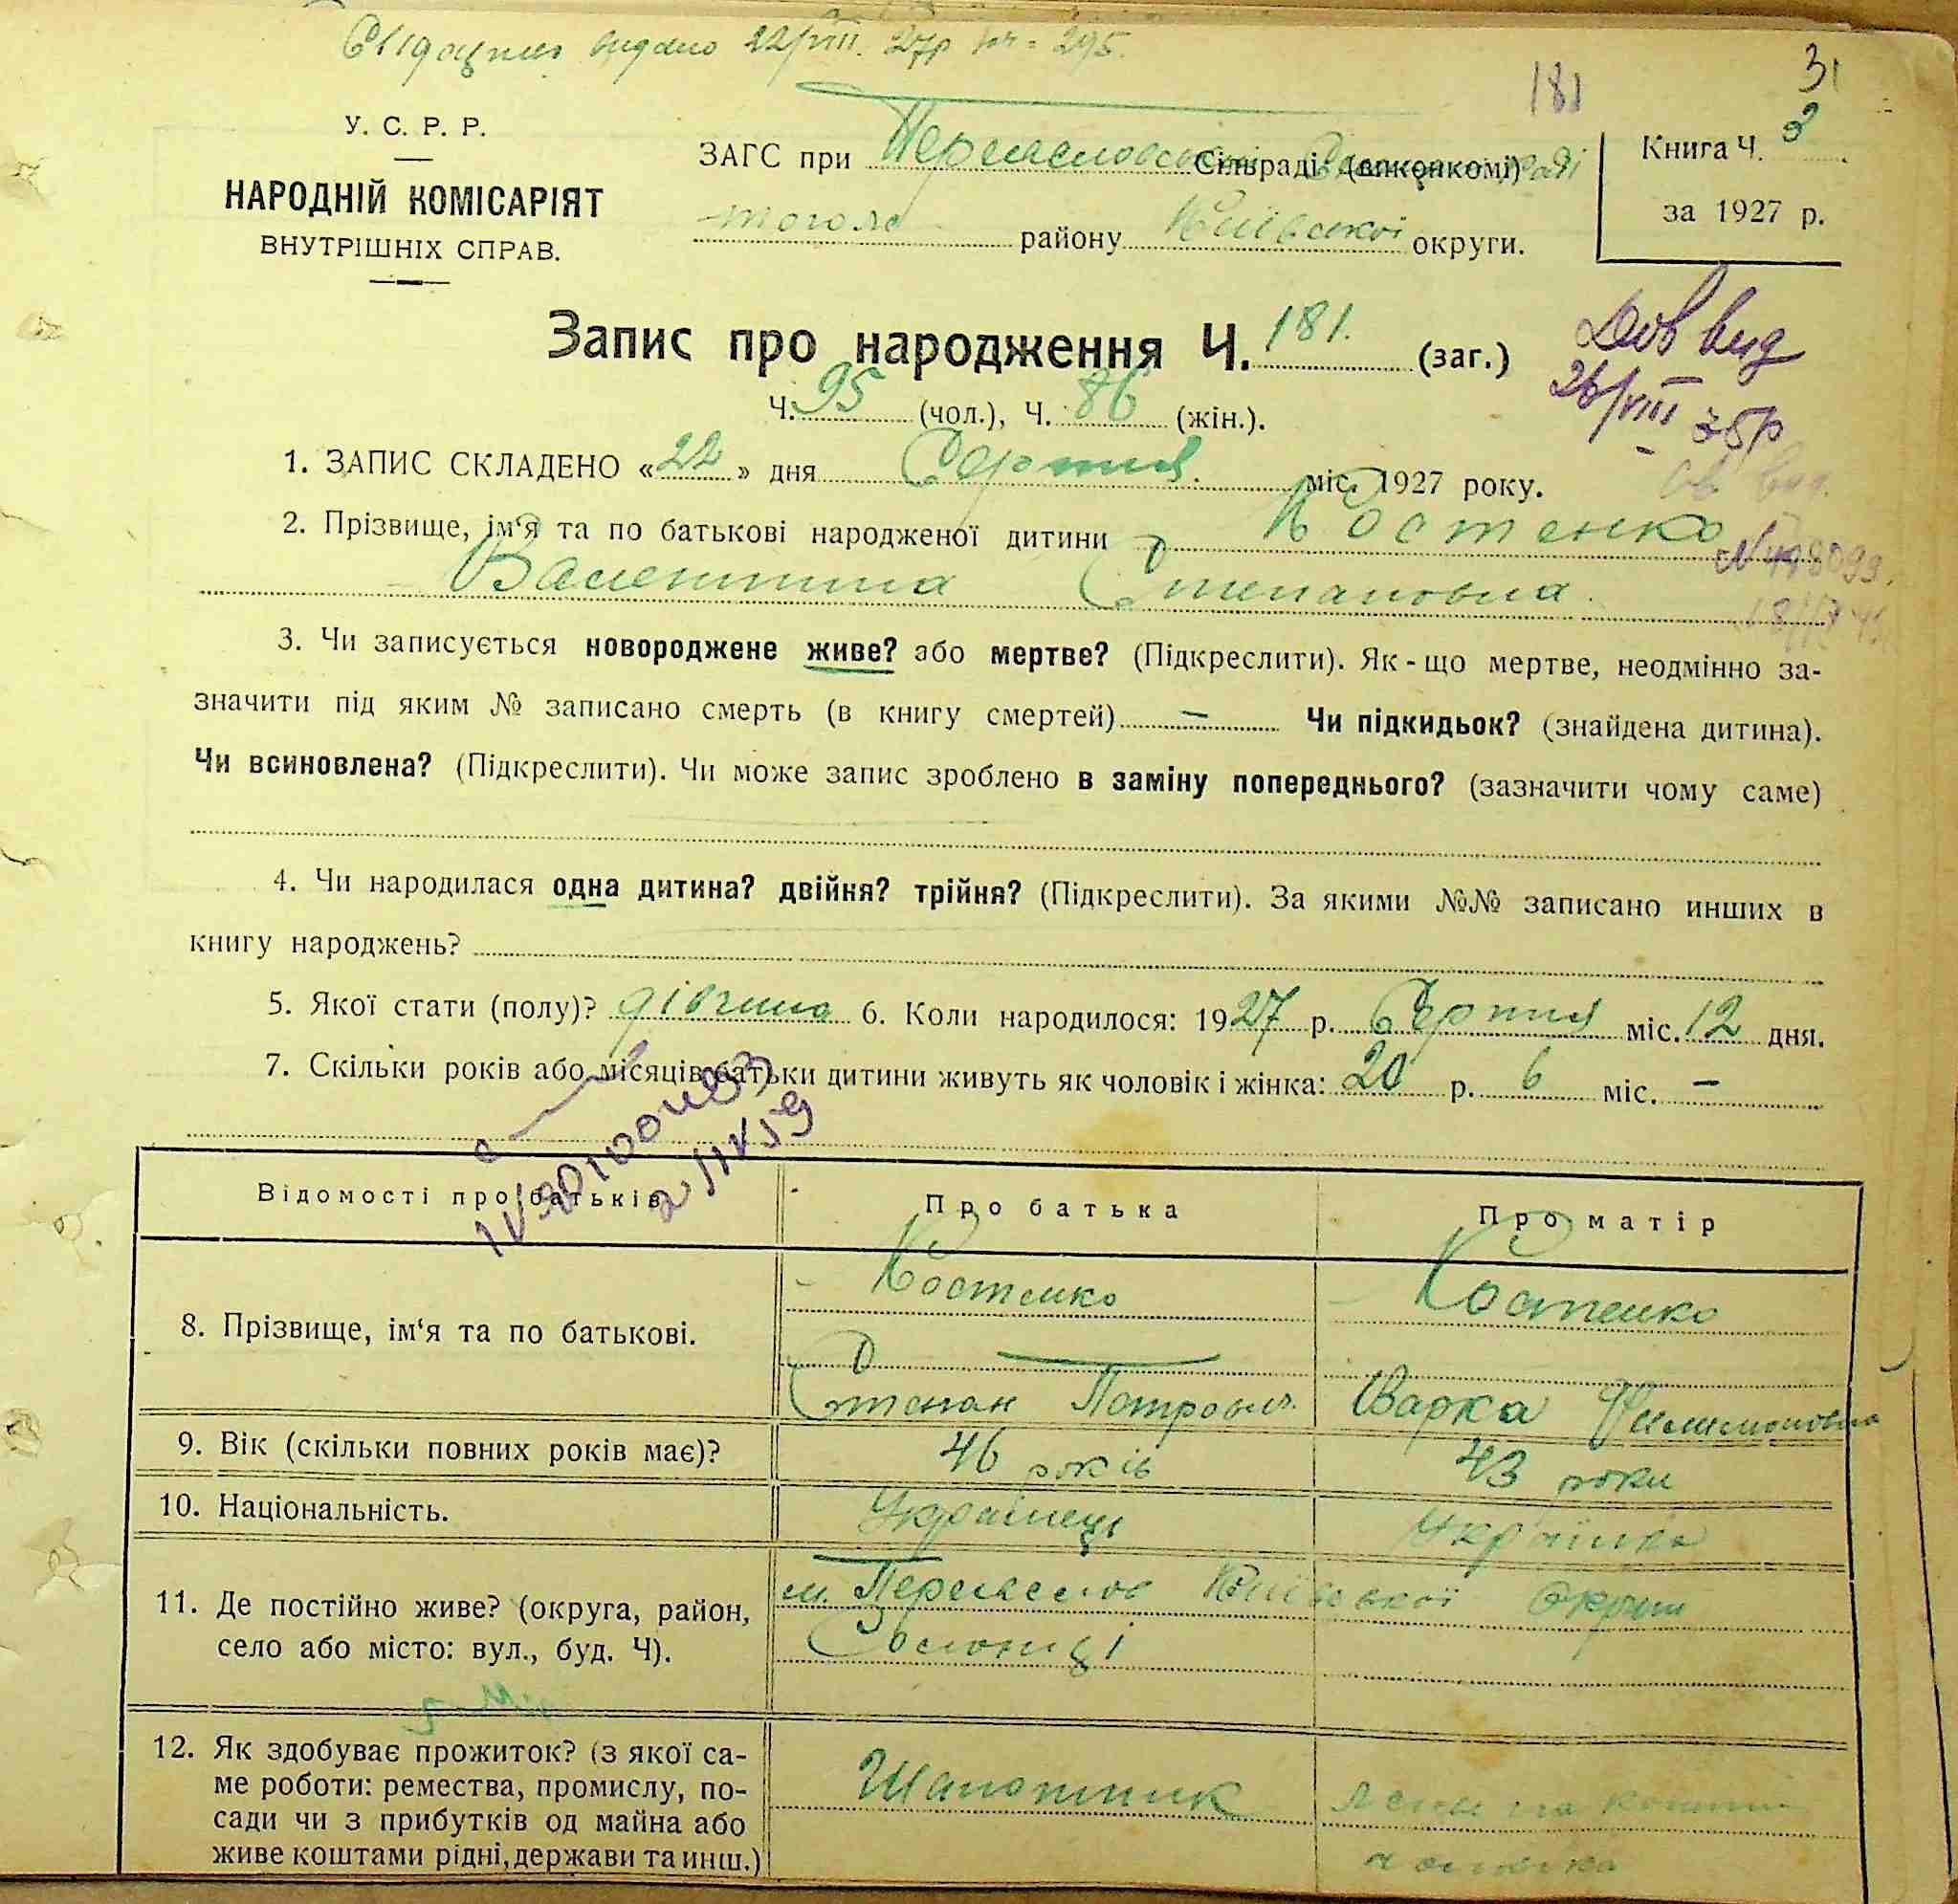 Свідоцтво видано 22/VIII. 27р № 295.
181
31
У. С. Р. Р.
НАРОДНІЙ КОМІСАРІЯТ
ВНУТРІШНІХ СПРАВ.
ЗАГС при Переяславській Сільраді (виконкомі)
того ж району Київської округи.
Книга Ч. 3
за 1927 р.
Запис про народження Ч. 181. (заг.)
Ч. 95 (чол.), Ч. 86 (жін.).
Дов вид
26/VIII 35р
1. ЗАПИС СКЛАДЕНО «22» дня Серпня. міс. 1927 року.
2. Прізвище, ім‘я та по батькові народженої дитини Костенко
Валентина Степановна.
3. Чи записується новороджене живе? або мертве? (Підкреслити). Як-що мертве, неодмінно за-
значити під яким № записано смерть (в книгу смертей) — Чи підкидьок? (знайдена дитина).
Чи всиновлена? (Підкреслити). Чи може запис зроблено в заміну попереднього? (зазначити чому саме)
4. Чи народилася одна дитина? двійня? трійня? (Підкреслити). За якими №№ записано инших в
книгу народжень?
5. Якої стати (полу)? дівчина 6. Коли народилося: 1927 р. Серпня міс. 12 дня.
7. Скільки років або місяців батьки дитини живуть як чоловік і жінка: 20 р. 6 міс. —
Відомості про батьків
Про батька
Про матір
8. Прізвище, ім‘я та по батькові.
Костенко
Степан Петрович.
Костенко
Варка Филимоновна
9. Вік (скільки повних років має)?
46 років
43 роки
10. Національність.
Українець
Українка
11. Де постійно живе? (округа, район,
село або місто: вул., буд. Ч).
м. Переяслов Київської Округи
Солонці
12. Як здобуває прожиток? (з якої са-
ме роботи: ремества, промислу, по-
сади чи з прибутків од майна або
живе коштами рідні, держави та инш.)
Шапошник
на кошти
чоловіка